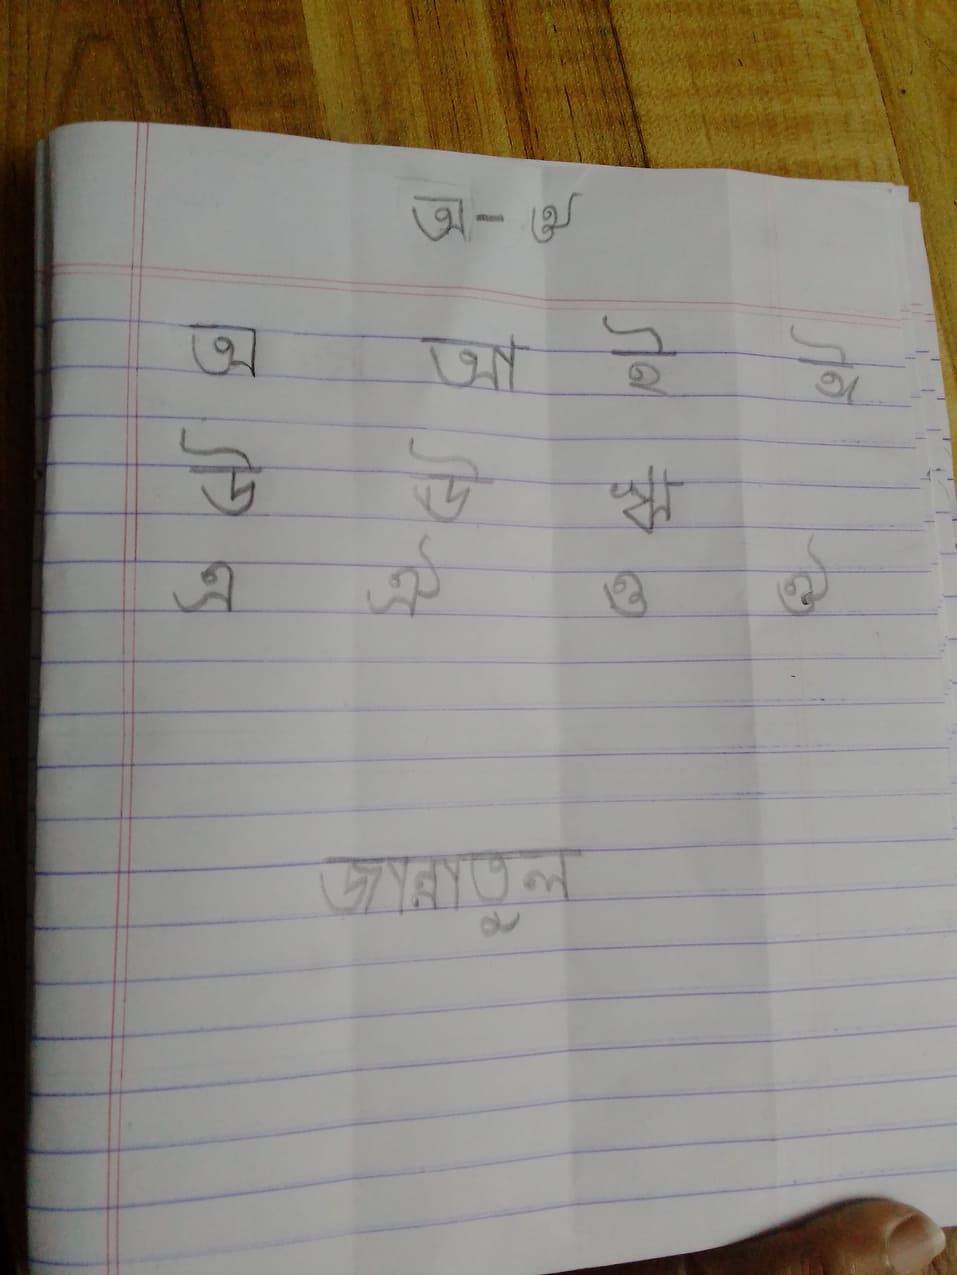 অ - ঔ
অ আ ই ঈ
উ ঊ ঋ
এ ঐ ও ঔ
জান্নাতুল